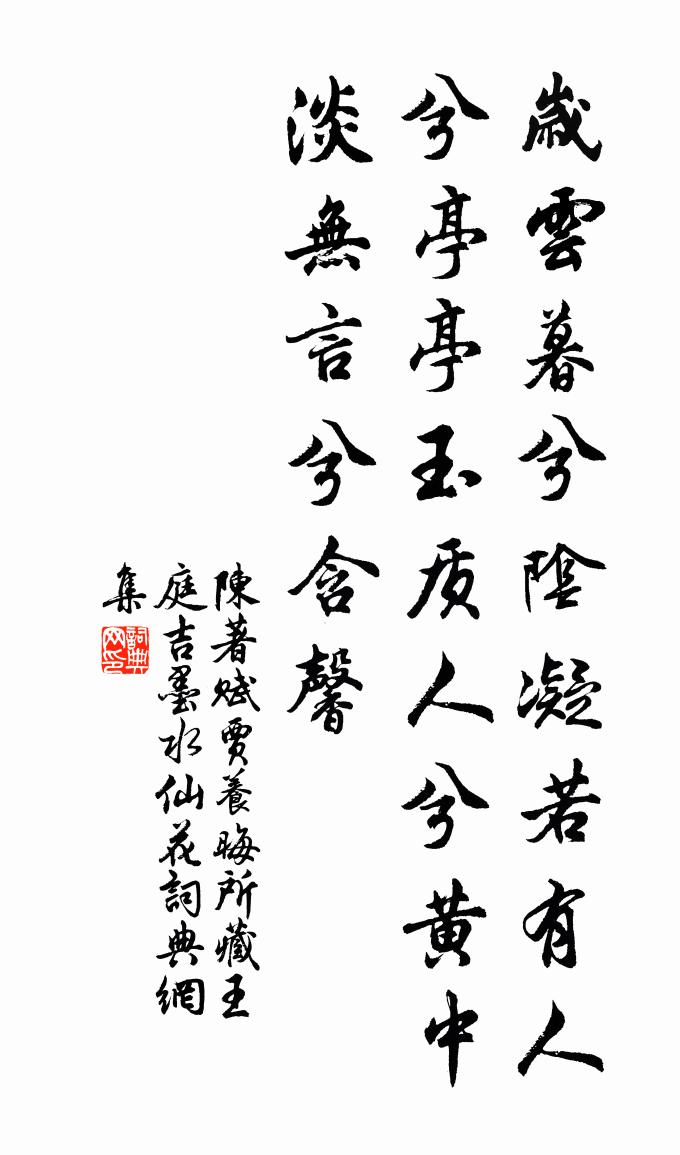 歲雲暮兮陰凝若有人
兮亭亭玉质人兮黃中
淡無言兮含馨
陳著赋賈養晦所藏王
庭吉墨水仙花詞典網
集
詞典
网印